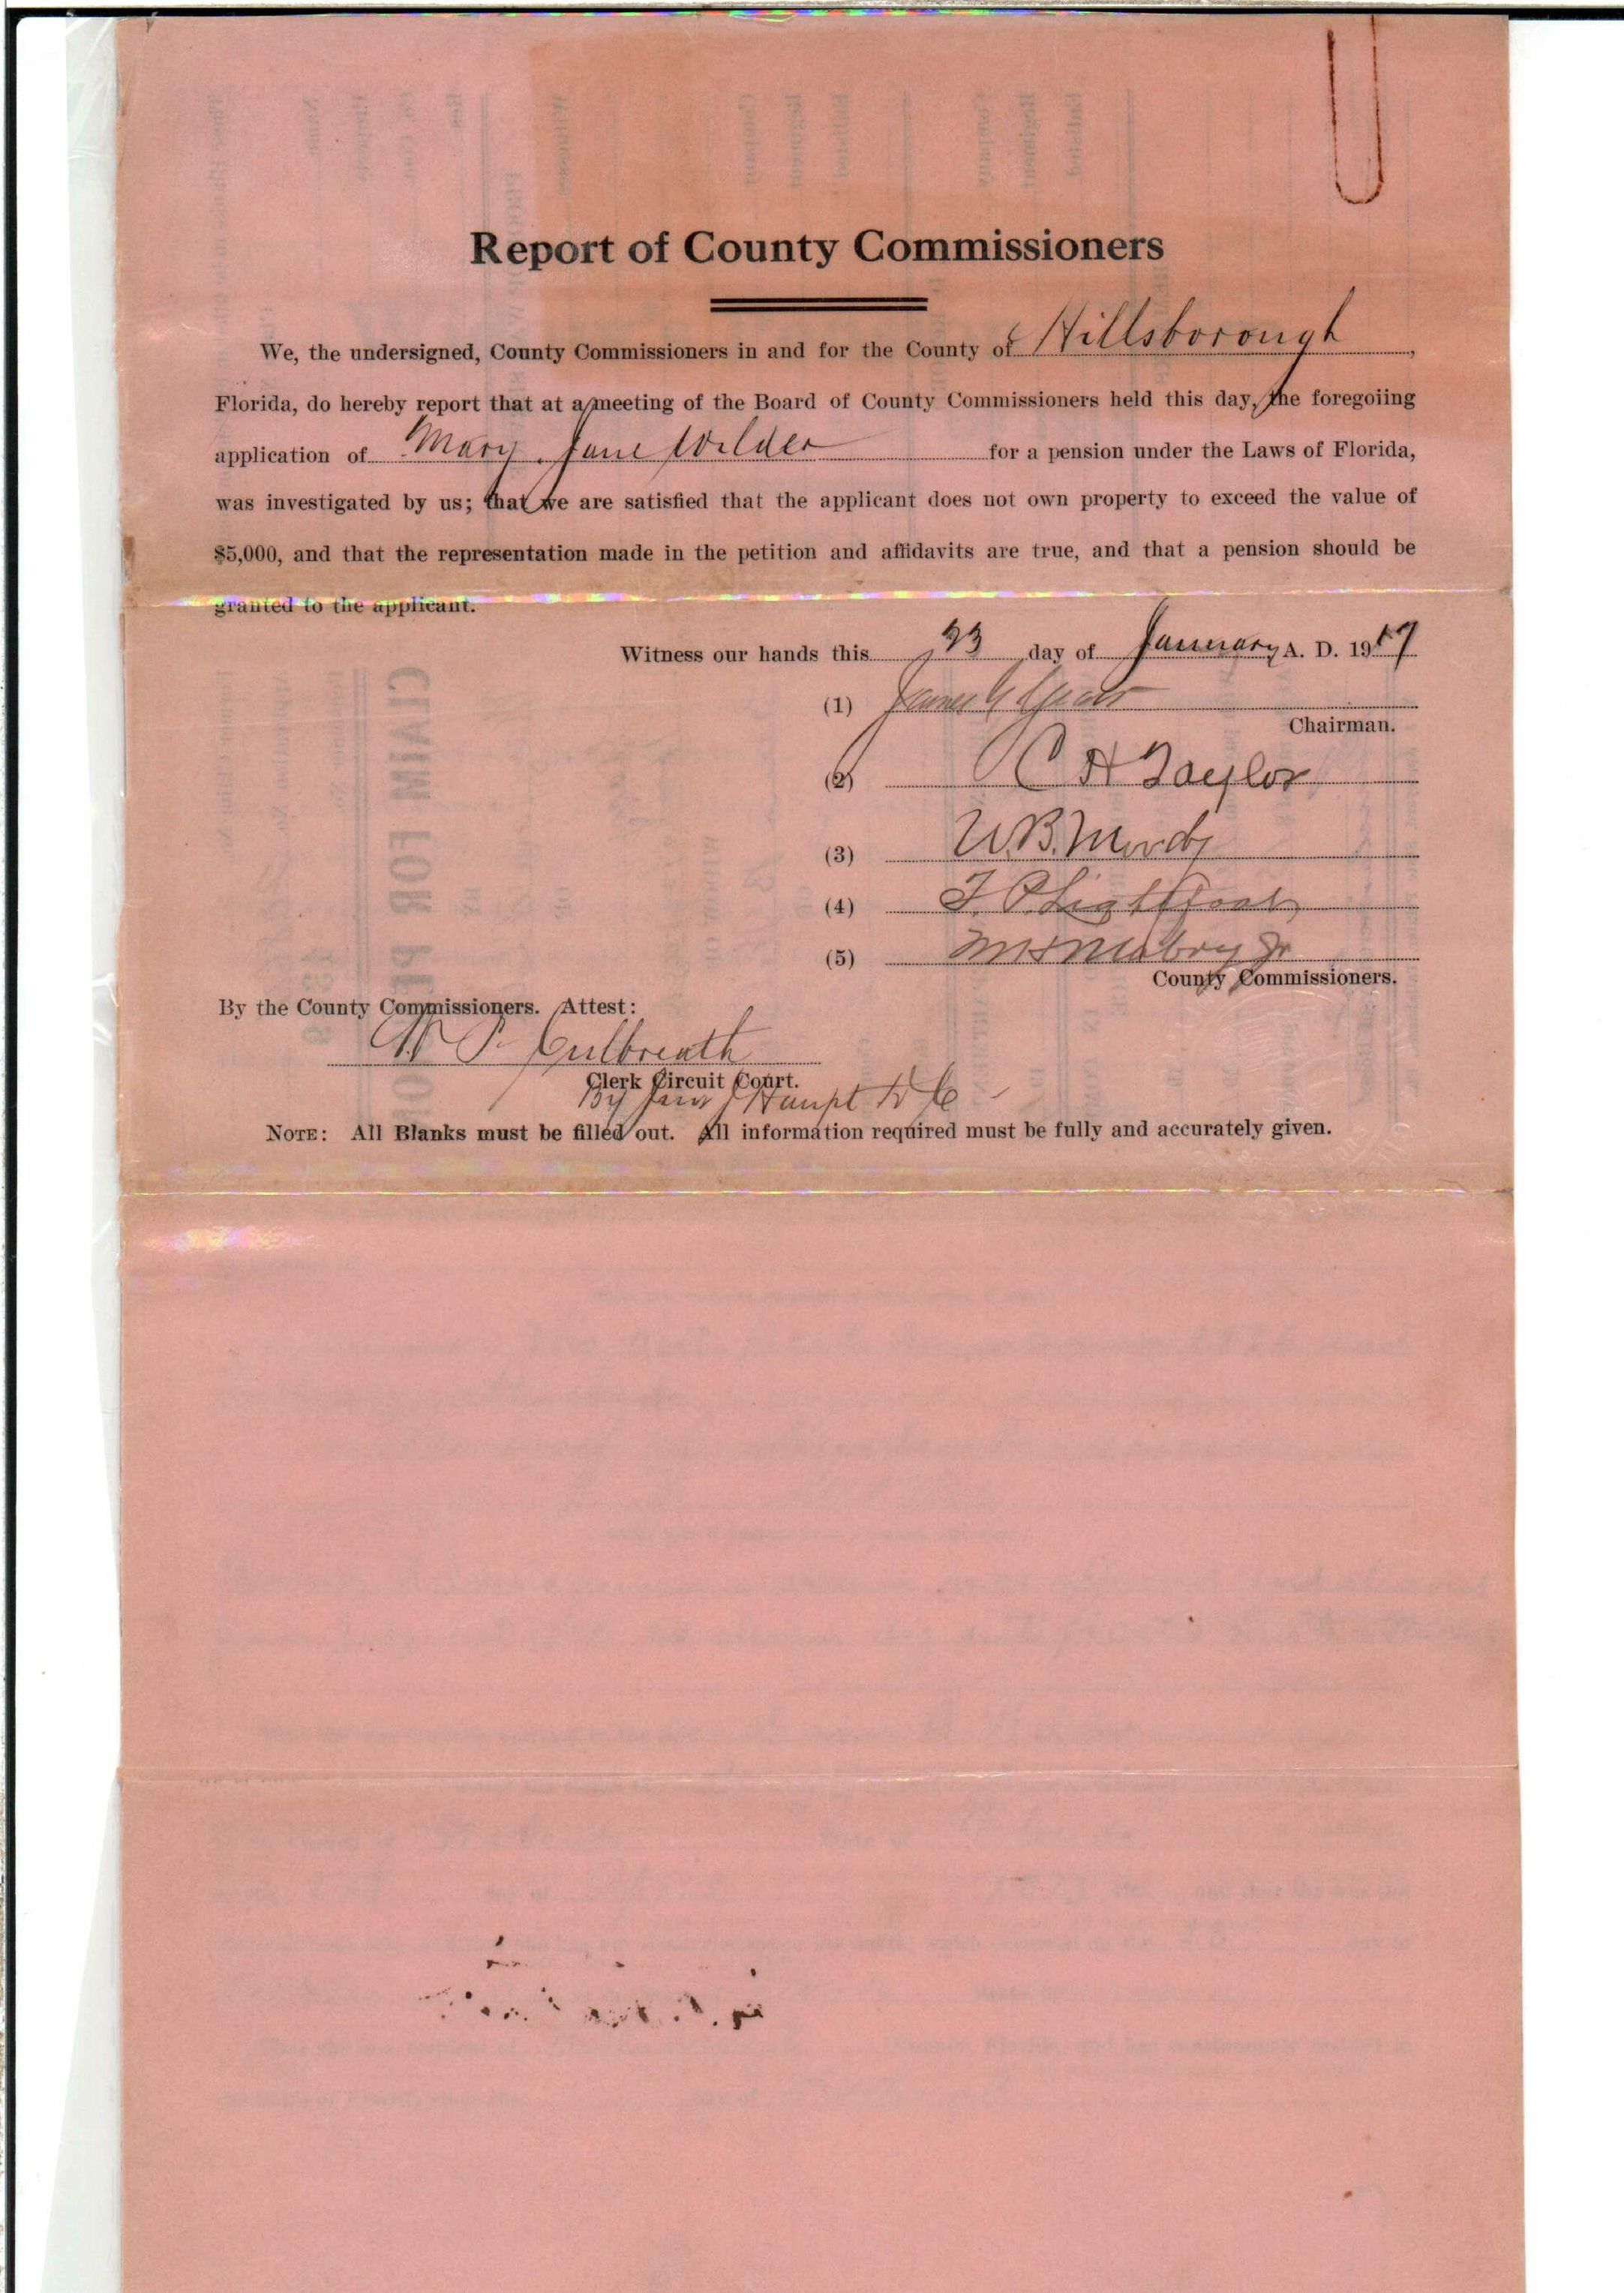 Report of County Commissioners
We, the undersigned, County Commissioners in and for the County of Hillsborough,
Florida, do hereby report that at a meeting of the Board of County Commissioners held this day, the foregoiing
application of Mary Jane Wilder for a pension under the Laws of Florida,
was investigated by us; that we are satisfied that the applicant does not own property to exceed the value of
$5,000, and that the representation made in the petition and affidavits are true, and that a pension should be
granted to the applicant.
Witness our hands this 23 day of January A. D. 1917
(1) James G
Chairman.
(2) C H Taylor
(3) W.B. Moody
(4) F. P. Lightfoot
(5) M H Mabry Jr
County Commissioners.
By the County Commissioners. Attest:
W P Culbreath
Clerk Circuit Court.
By Haupt D C
NOTE: All Blanks must be filled out. All information required must be fully and accurately given.